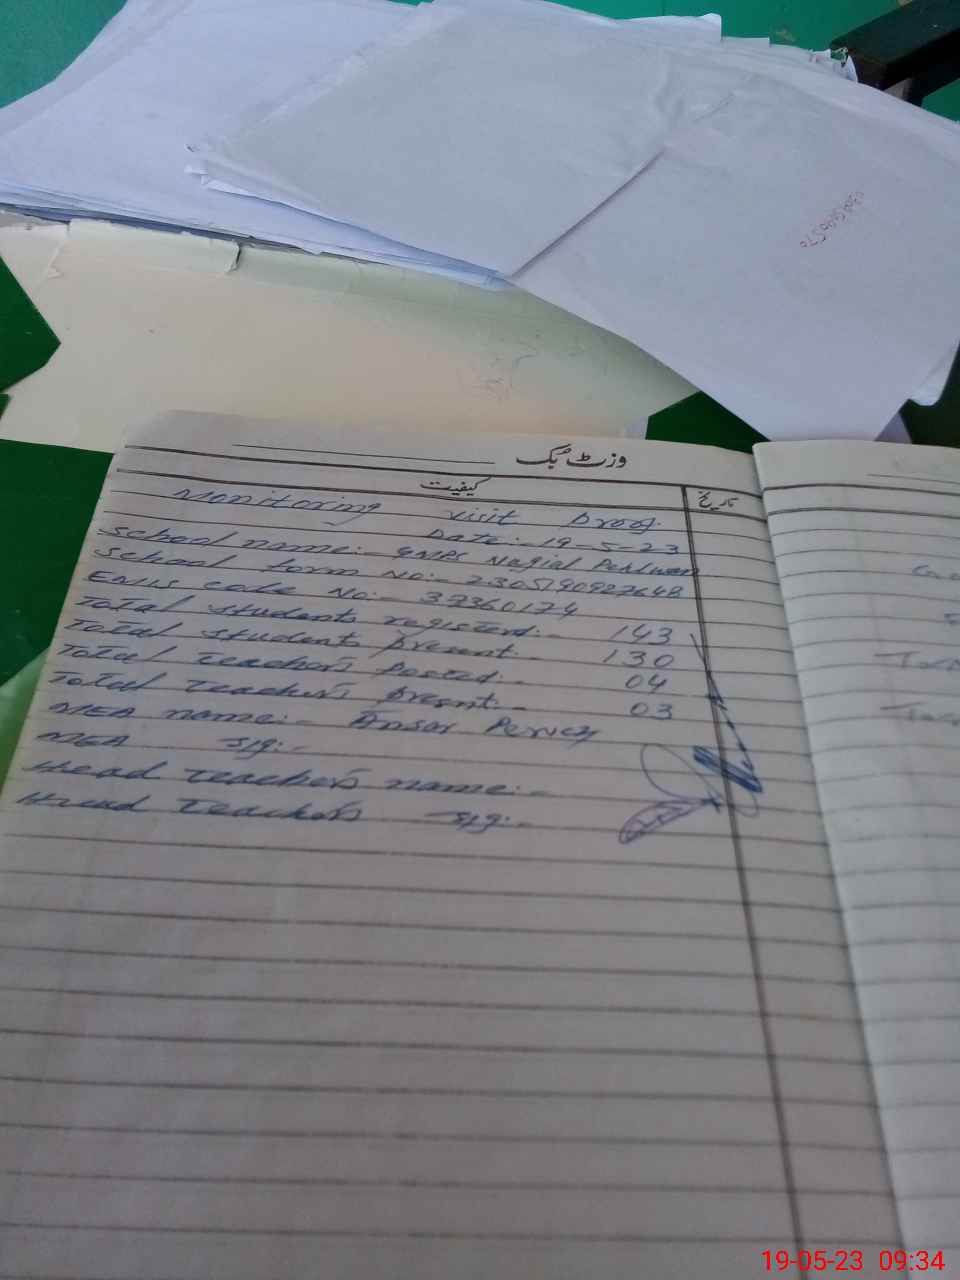 وزٹ بک
کیفیت تاریخ
Monitoring visit proof
Date:- 19-5-23
School name:- GMPS Nagial Pehlwan
School form No:-
EMIS code No:- 37360174
Total students registerd:- 143
Total student present:- 130
Total teachers Posted:- 04
Total teachers present:- 03
MEA name:- Ansar Pervez
MEA sig:-
Head teacher's name:-
Head teacher's sig:-
19-05-23 09:34